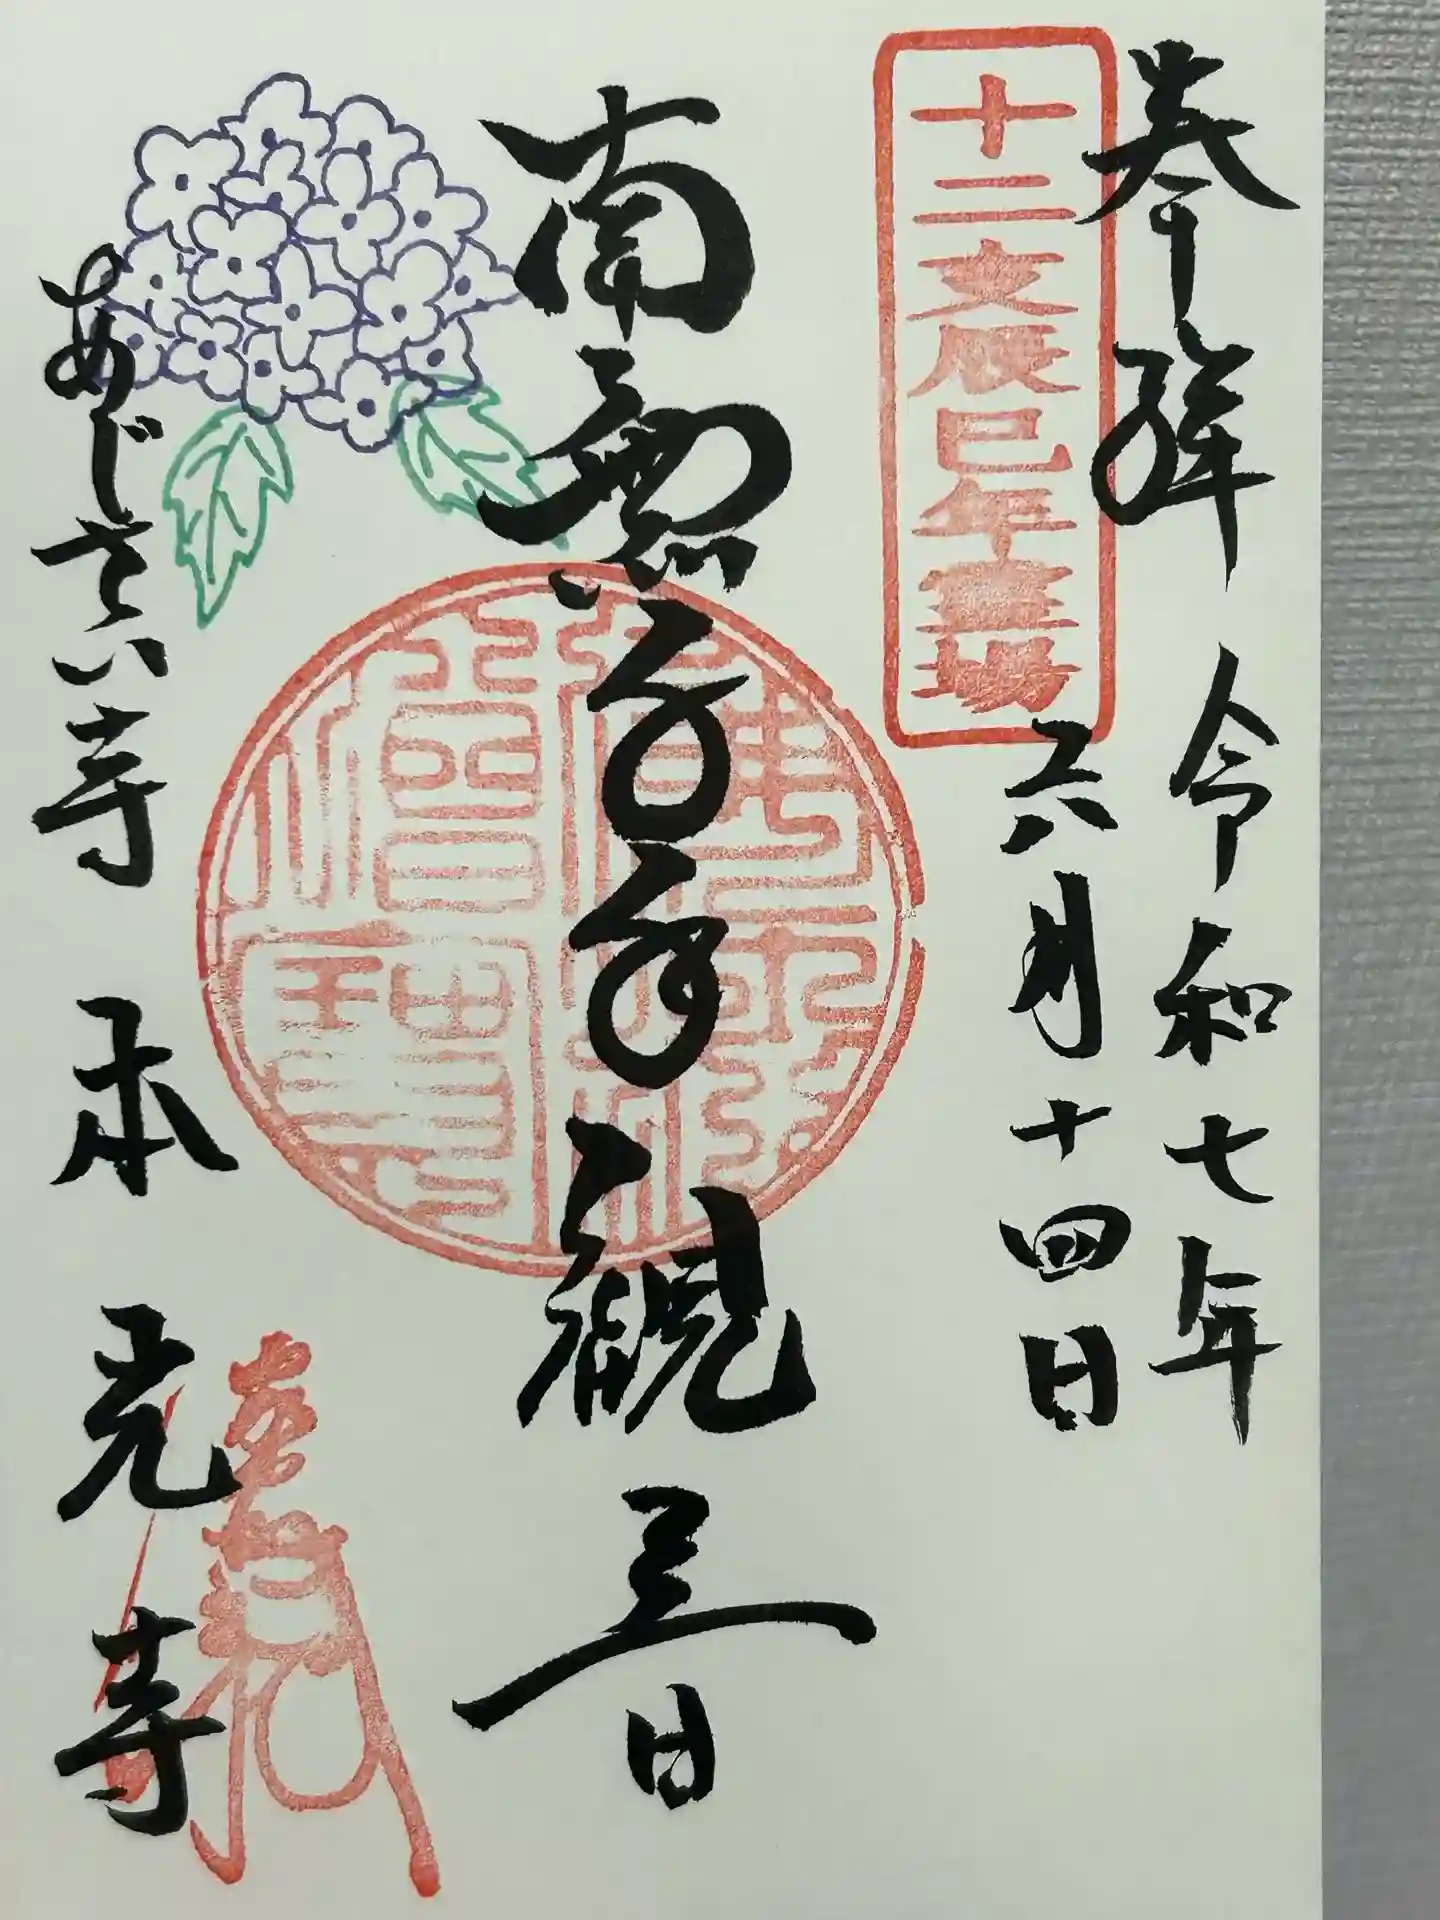 奉拝 令和七年
六月十四日
十二支辰巳年霊場
南無千手観音
あじさい寺 本光寺